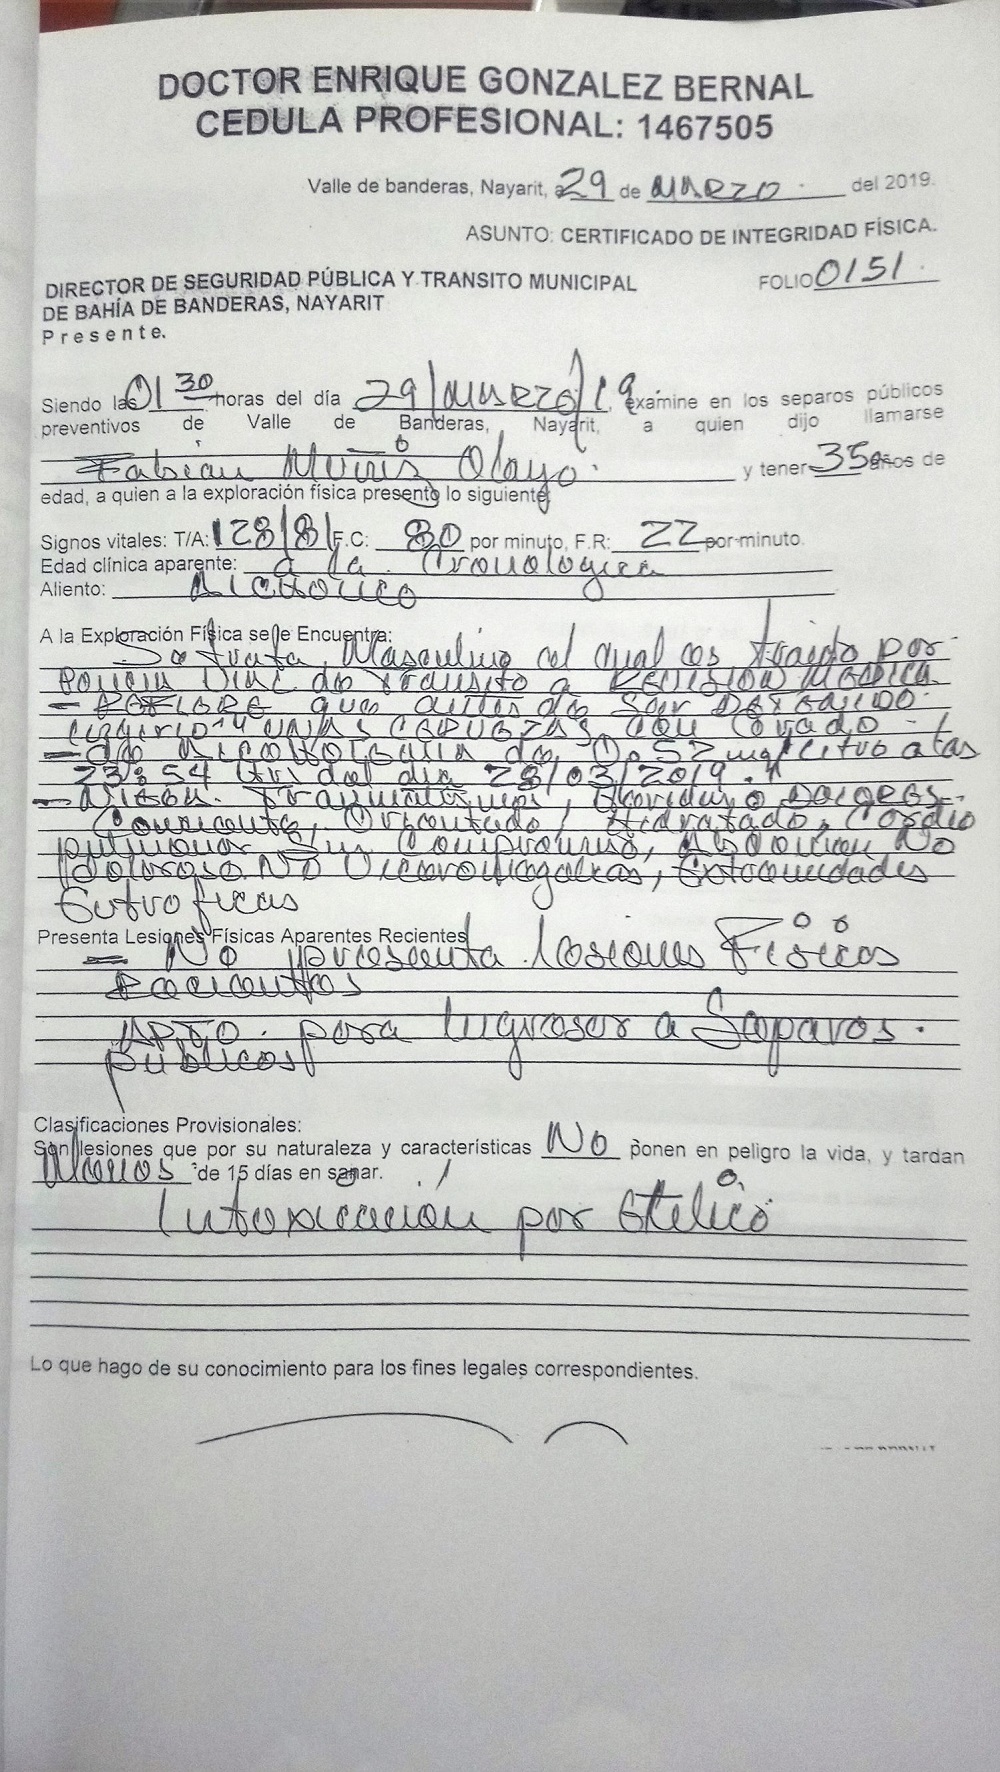 DOCTOR ENRIQUE GONZALEZ BERNAL
CEDULA PROFESIONAL: 1467505
Valle de banderas, Nayarit, a 29 de MARZO del 2019.
ASUNTO: CERTIFICADO DE INTEGRIDAD FÍSICA.
DIRECTOR DE SEGURIDAD PÚBLICA Y TRANSITO MUNICIPAL FOLIO 0151
DE BAHÍA DE BANDERAS, NAYARIT
Presente.
Siendo las 01 30 horas del día 29/marzo/19 examine en los separos públicos
preventivos de Valle de Banderas, Nayarit, a quien dijo llamarse
Fabian Olayo y tener 35 años de
edad, a quien a la exploración física presento lo siguiente:
Signos vitales: T/A: 128/81 F.C: 80 por minuto, F.R: 22 por minuto.
Edad clínica aparente: a la Cronologica
Aliento: Alcoholico
A la Exploración Física se le Encuentra:
Se trata Masculino el cual es traido por
Policia Vial de transito a REVISION Medica
- REFIERE que antes de Ser DETENIDO
ingirio 4 CERVEZAS, con grado
- de Alcoholemia de 0.52 mg/l a las
23:54 del dia 28/03/2019.
- Heridas o
Conciente, Orientado, Hidratado, Cardio
pulmonar Sin Compromiso, Abdomen No
doloroso No Viceromegalias, Extremidades
Eutroficas
Presenta Lesiones Físicas Aparentes Recientes
- No presenta lesiones Físicas
Recientes
APTO para Ingresar a Separos
públicos
Clasificaciones Provisionales:
Son lesiones que por su naturaleza y características No ponen en peligro la vida, y tardan
Menos de 15 días en sanar.
Intoxicación por Etílico
Lo que hago de su conocimiento para los fines legales correspondientes.